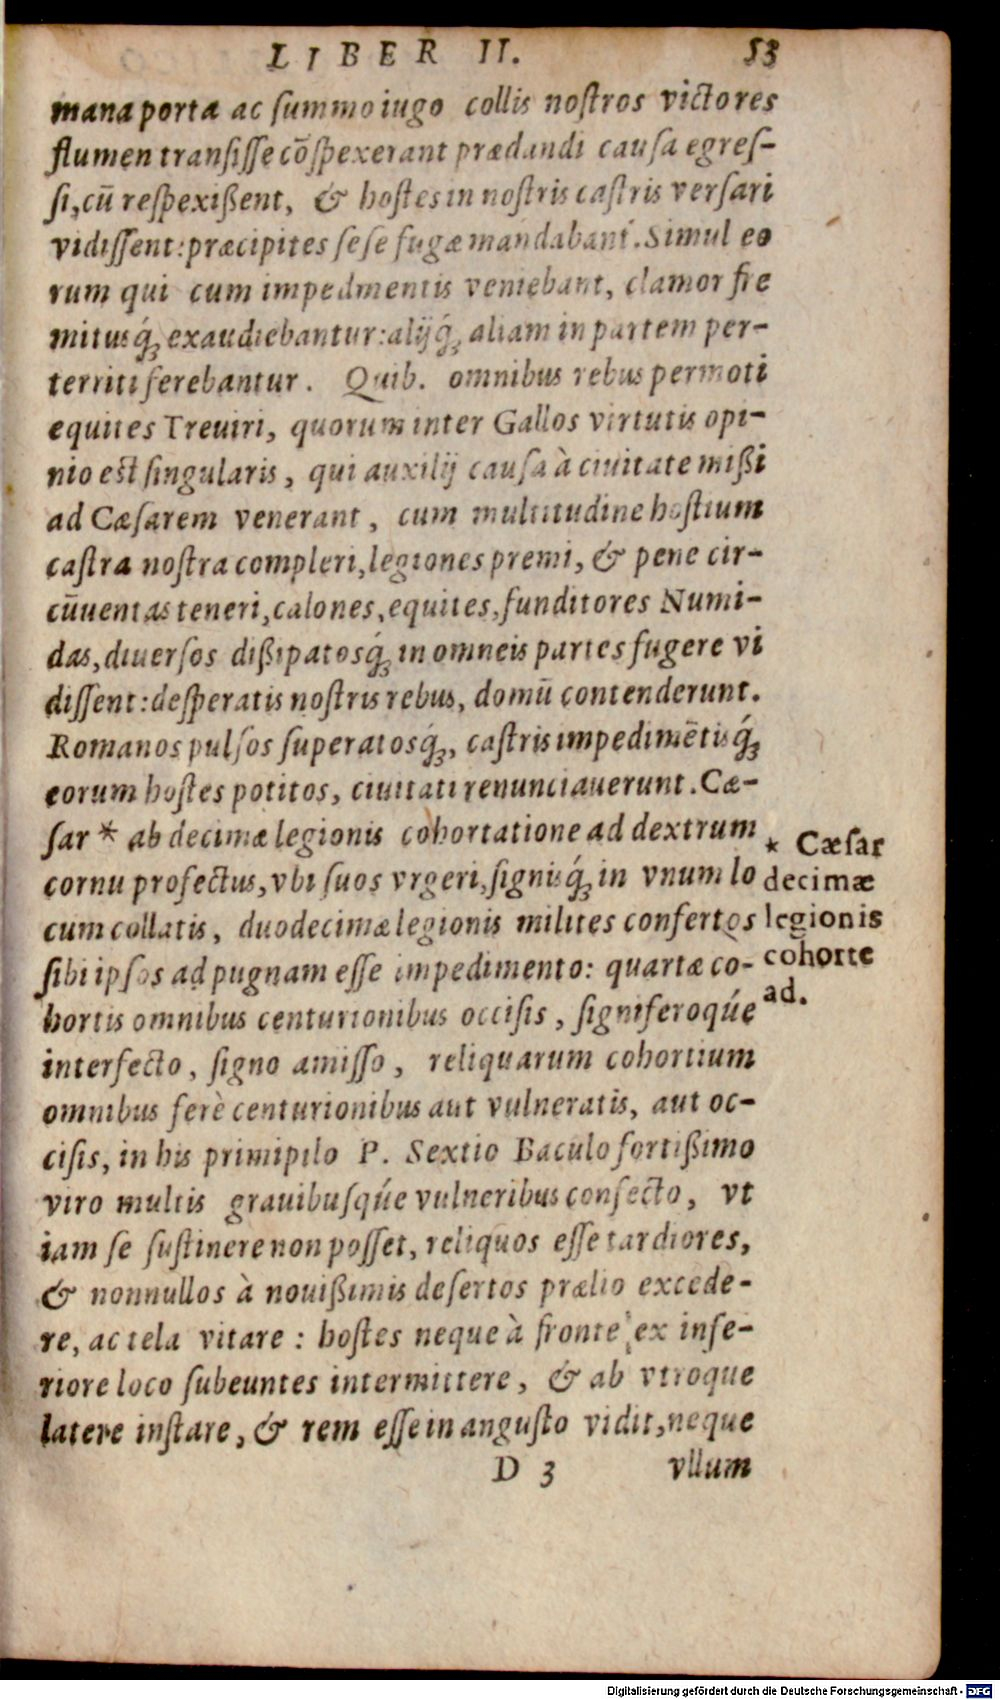 LIBER II. 53
mana porta ac ſummo iugo collis noſtros victores
flumen tranſiſſe cōſpexerant prædandi cauſa egreſ-
ſi, cū reſpexißent, & hoſtes in noſtris caſtris verſari
vidiſſent: præcipites ſeſe fugæ mandabant. Simul eo
rum qui cum impedmentis veniebant, clamor fre
mitusq́ꝫ exaudiebantur: alijq́ꝫ aliam in partem per-
territi ferebantur. Quib. omnibus rebus permoti
equites Treuiri, quorum inter Gallos virtutis opi-
nio eſt ſingularis, qui auxilij cauſa à ciuitate mißi
ad Cæſarem venerant, cum multitudine hoſtium
caſtra noſtra compleri, legiones premi, & pene cir-
cūuentas teneri, calones, equites, funditores Numi-
das, diuerſos dißipatosq́ꝫ in omneis partes fugere vi
diſſent: deſperatis noſtris rebus, domū contenderunt.
Romanos pulſos ſuperatosq́ꝫ, caſtris impedimētisq́ꝫ
eorum hoſtes potitos, ciuitati renunciauerunt. Cæ-
ſar * ab decimæ legionis cohortatione ad dextrum
cornu profectus, vbi ſuos vrgeri, ſignisq́ꝫ in vnum lo
cum collatis, duodecimæ legionis milites confertos
ſibi ipſos ad pugnam eſſe impedimento: quartæ co-
hortis omnibus centurionibus occiſis, ſigniferoqúe
interfecto, ſigno amiſſo, reliquarum cohortium
omnibus ferè centurionibus aut vulneratis, aut oc-
ciſis, in his primipilo P. Sextio Baculo fortißimo
viro multis grauibuſqúe vulneribus confecto, vt
iam ſe ſuſtinere non poſſet, reliquos eſſe tardiores,
& nonnullos à nouißimis deſertos prælio excede-
re, ac tela vitare: hoſtes neque à fronte ex infe-
riore loco ſubeuntes intermittere, & ab vtroque
latere inſtare, & rem eſſe in anguſto vidit, neque
D 3 vllum
* Cæſar
decimæ
legionis
cohorte
ad.
Digitalisierung gefördert durch die Deutsche Forschungsgemeinschaft - DFG